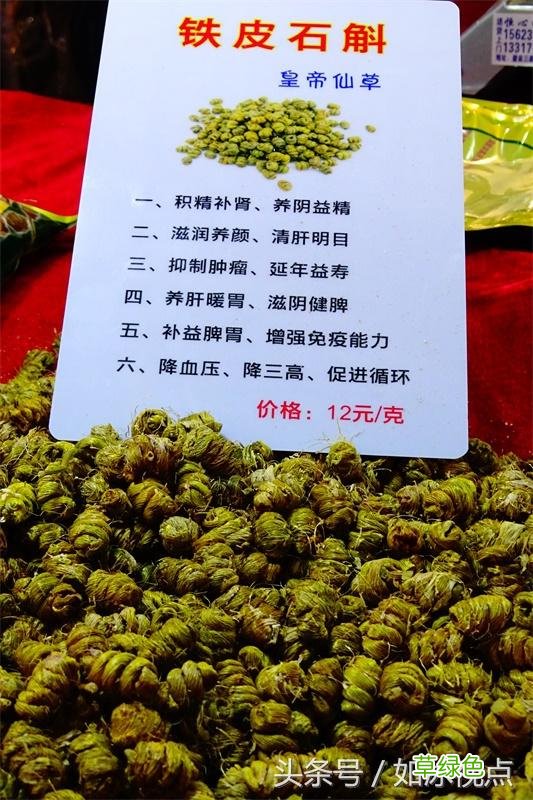 铁皮石斛
皇帝仙草
一、积精补肾、养阴益精
二、滋润养颜、清肝明目
三、抑制肿瘤、延年益寿
四、养肝暖胃、滋阴健脾
五、补益脾胃、增强免疫能力
六、降血压、降三高、促进循环
价格：12元/克
15623
13317
草绿色
头条号／如
点